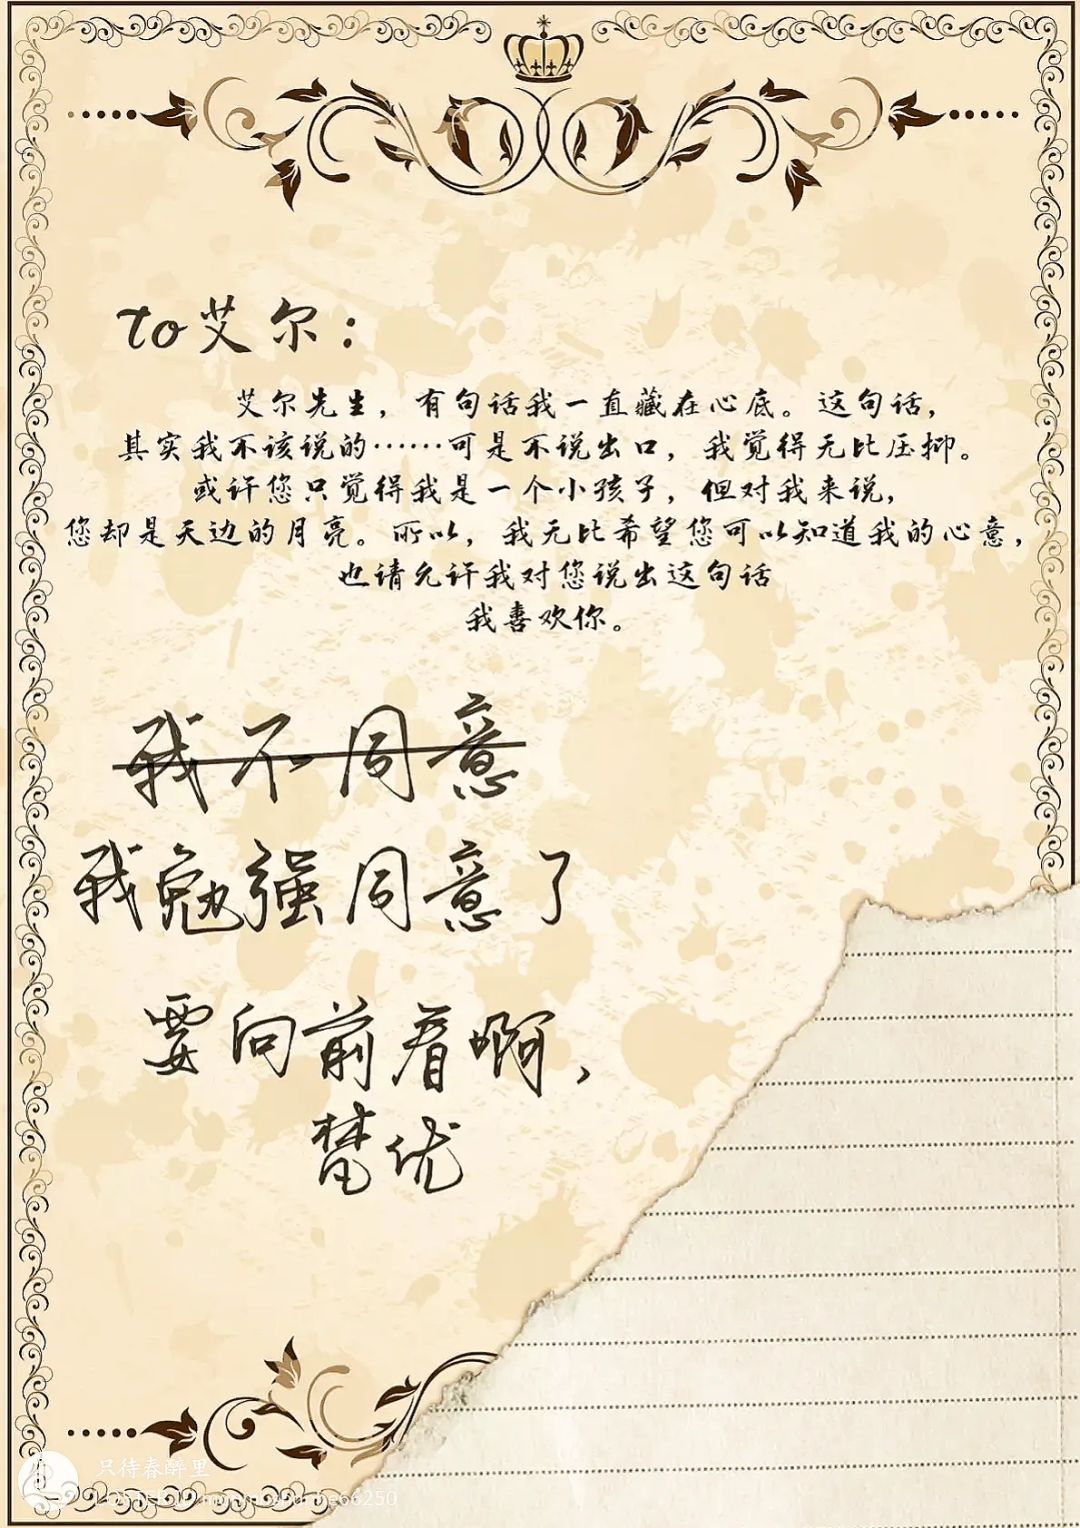 to艾尔：
艾尔先生，有句话我一直藏在心底。这句话，
其实我不该说的……可是不说出口，我觉得无比压抑。
或许您只觉得我是一个小孩子，但对我来说，
您却是天边的月亮。所以，我无比希望您可以知道我的心意，
也请允许我对您说出这句话
我喜欢你。
我不同意
我勉强同意了
要向前看啊，
梵优
只待春醉里